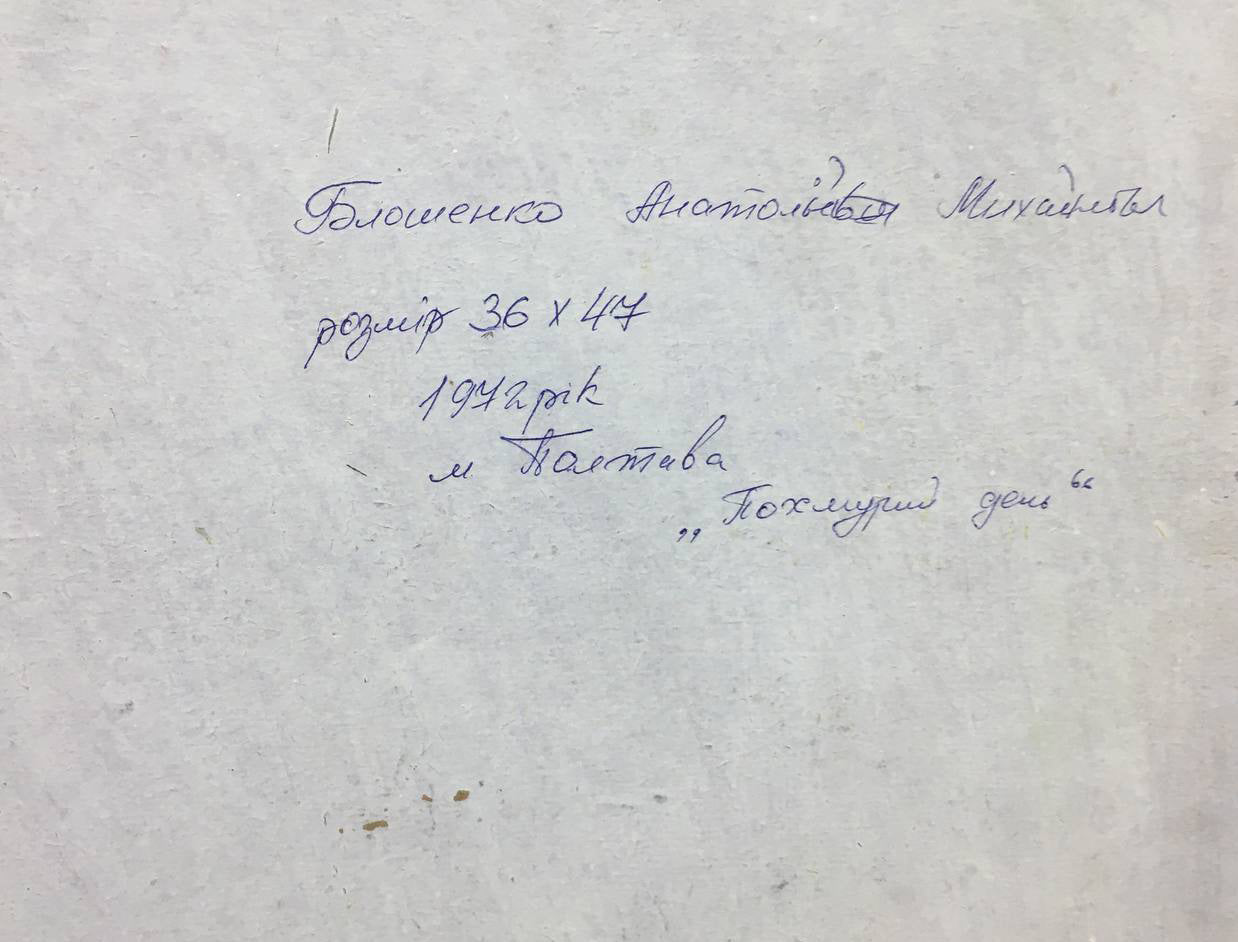 Блошенко Анатолій Михайлович
розмір 36 х 47
1972 рік
м Полтава
„Похмурий день“